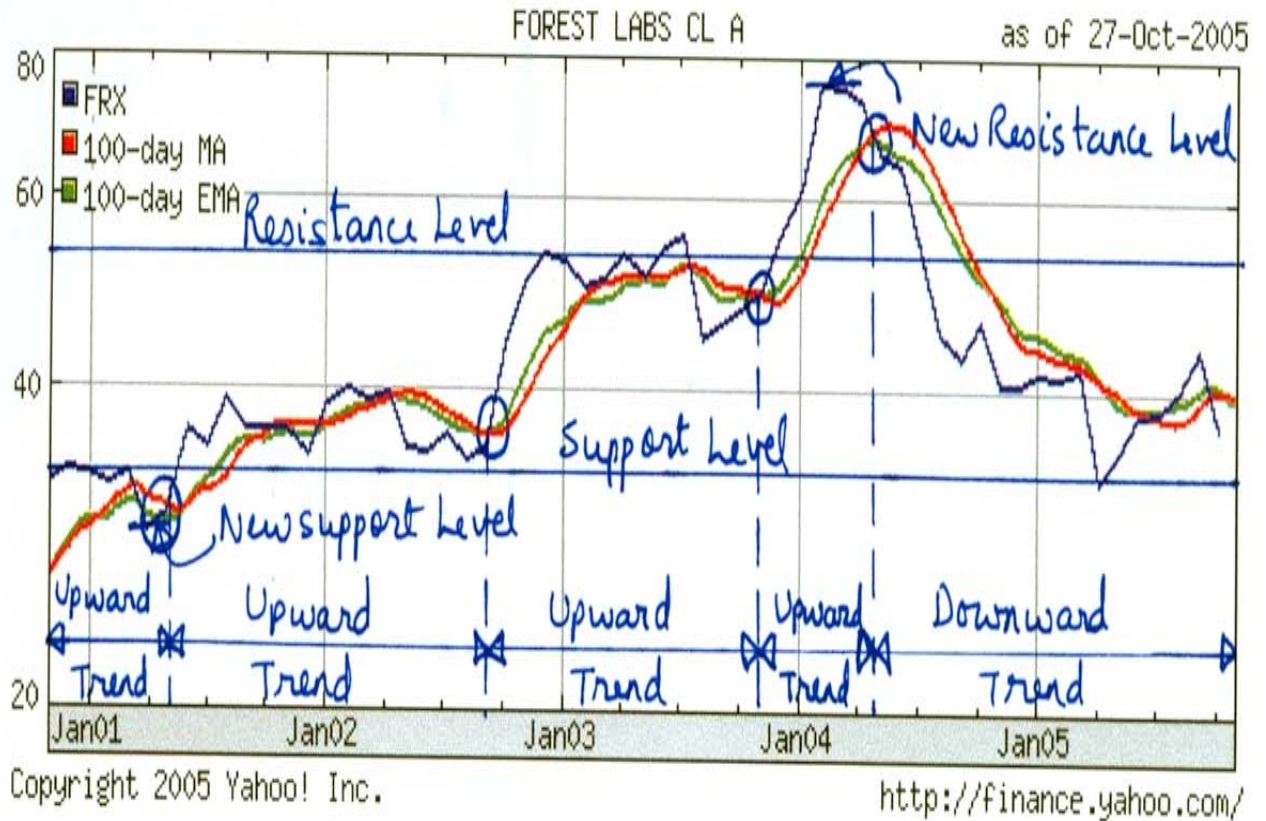 FOREST LABS CL A
as of 27-Oct-2005
80
FRX
100-day MA
60
100-day EMA
New Resistance Level
Resistance Level
40
Support Level
New support Level
Upward Upward Upward Upward Downward
Trend Trend Trend Trend Trend
20
Jan01 Jan02 Jan03 Jan04 Jan05
Copyright 2005 Yahoo! Inc.
http://finance.yahoo.com/